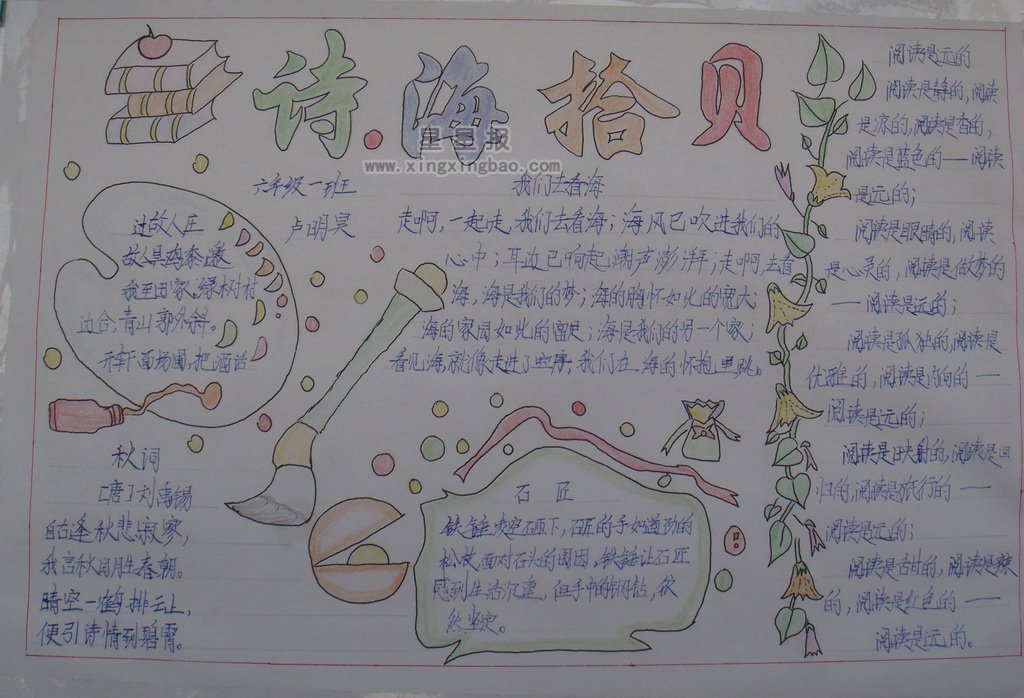 诗海拾贝
星星报
www.xingxingbao.com
六年级一班
卢明昊
过故人庄
故人具鸡黍,邀
我至田家。绿树村
边合,青山郭外斜。
开轩面场圃,把酒话
秋词
[唐]刘禹锡
自古逢秋悲寂寥,
我言秋日胜春朝。
晴空一鹤排云上,
便引诗情到碧霄。
我们去看海
走啊,一起走,我们去看海;海风已吹进我们的
心中;耳边已响起潮声澎湃;走啊,去看
海,海是我们的梦;海的胸怀如此的宽大;
海的家园如此的富足;海是我们的另一个家;
看见海,就像走进了 我们在海的怀抱里跳。
石匠
铁锤凌空砸下,石匠的手如遒劲的
松枝,面对石头的围困,铁锤让石匠
感到生活沉重,但手中的钢钻,依
然坚定。
阅读是元的
阅读是静的,阅读
是凉的,阅读是香的,
阅读是蓝色的——阅读
是元的;
阅读是眼睛的,阅读
是心灵的,阅读是做梦的
——阅读是远的;
阅读是孤独的,阅读是
优雅的,阅读是内向的——
阅读是元的;
阅读是映射的,阅读是回
归的,阅读是旅行的——
阅读是远的;
阅读是苦甘的,阅读是辣
的,阅读是红色的——
阅读是元的。